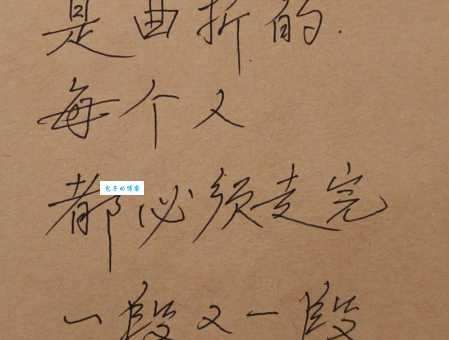 是曲折的.
每个人
都必须走完
一段又一段